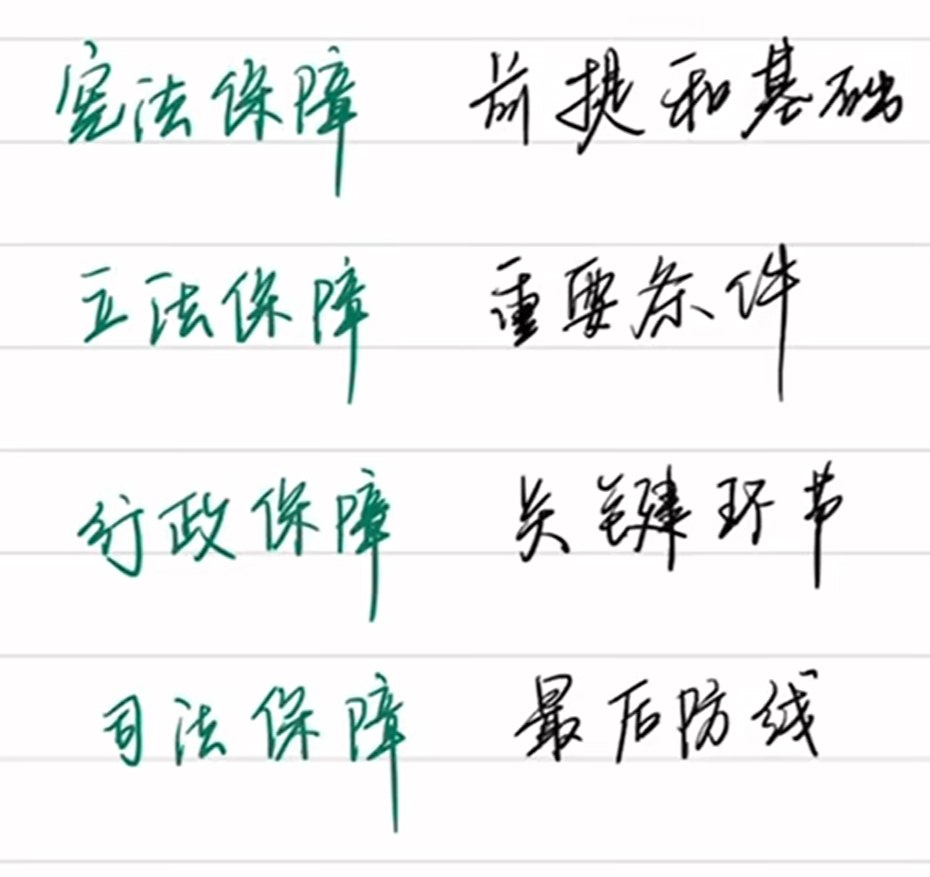 宪法保障 前提和基础
立法保障 重要条件
行政保障 关键环节
司法保障 最后防线